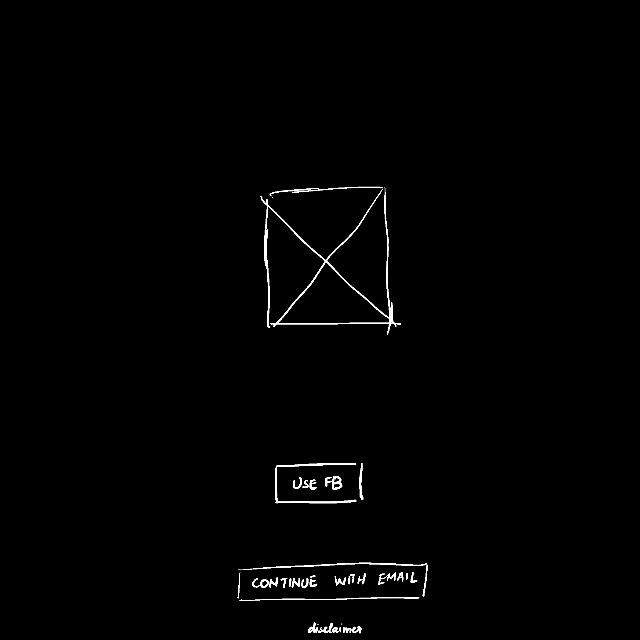 USE FB
CONTINUE WITH EMAIL
disclaimer